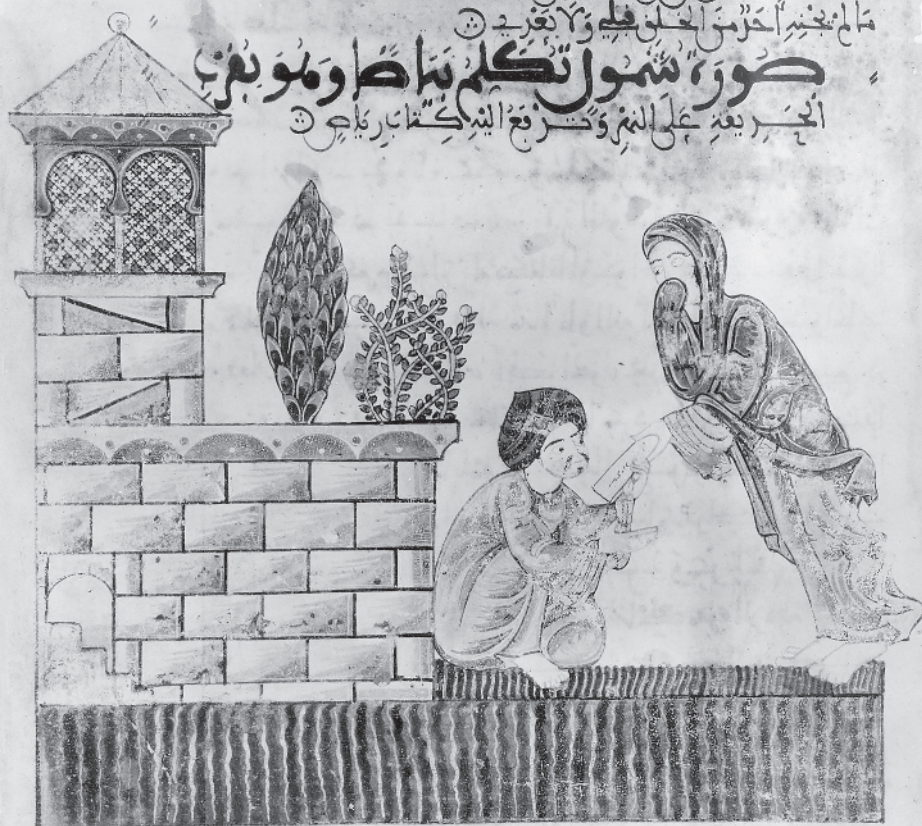 ما لم يجنه احد من الخلق قبلي ولا بعدي
صورة شمول تكلم بياضا وهو بقرب
على النهر وترفع اليه كتاب رياض